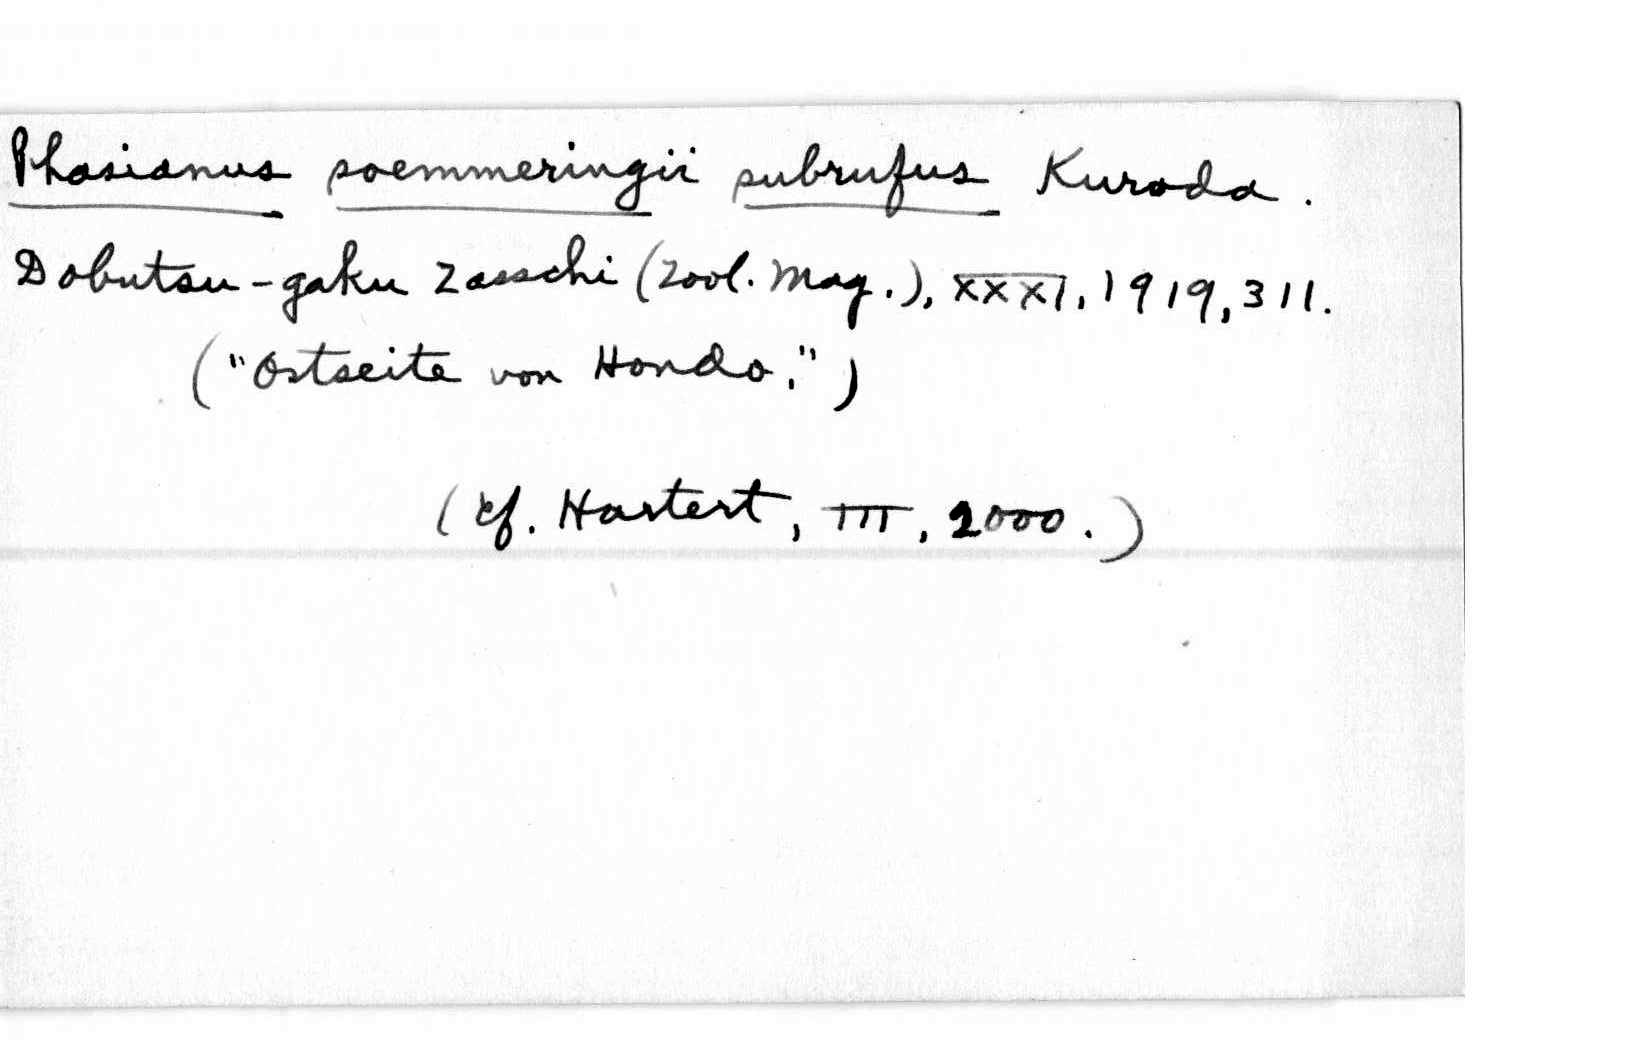 Phasianus soemmeringii subrufus Kuroda.
Dobutsu-gaku Zasschi (Zool. Mag.), XXXI, 1919, 311.
("Ostseite von Hondo.")
(cf. Hartert, III, 2000.)